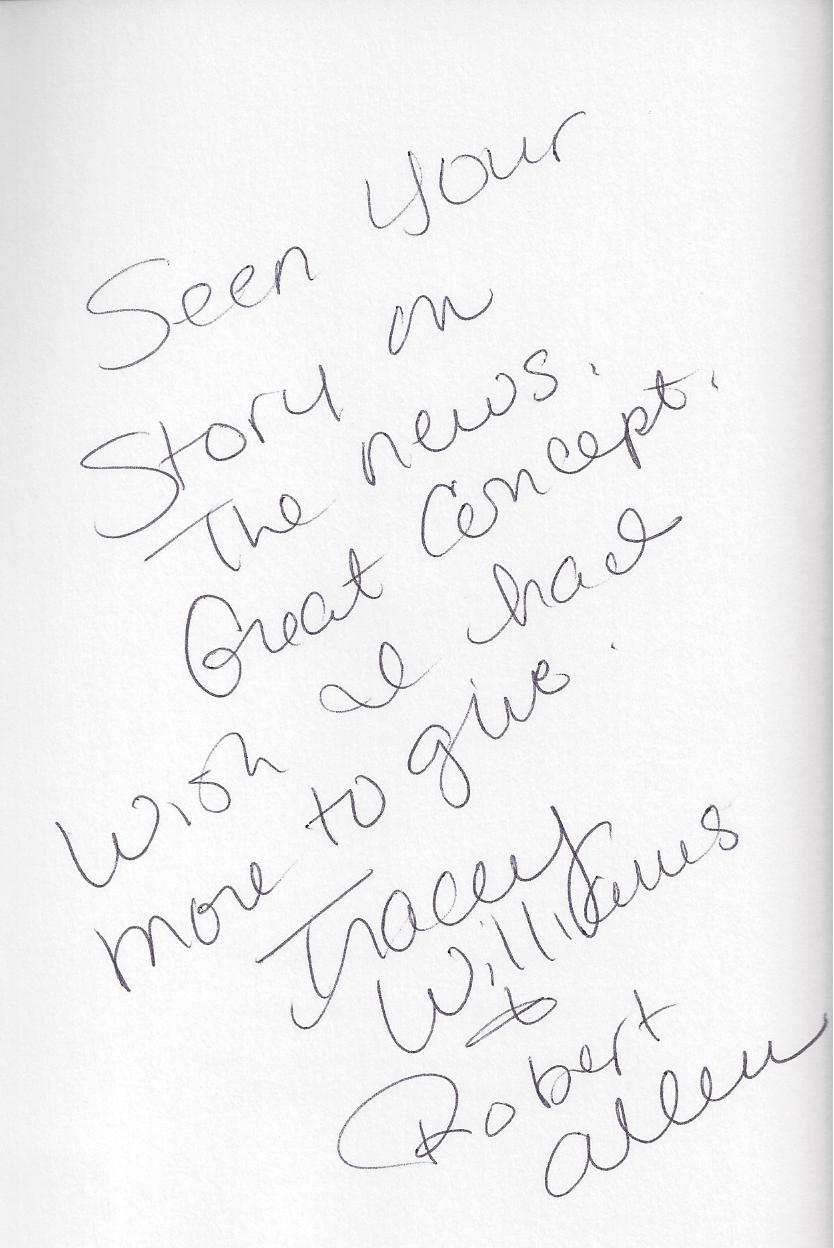 Seen Your
Story on
The news.
Great Concept.
Wish I had
more to give.
Tracey
Williams
&
Robert
Allen